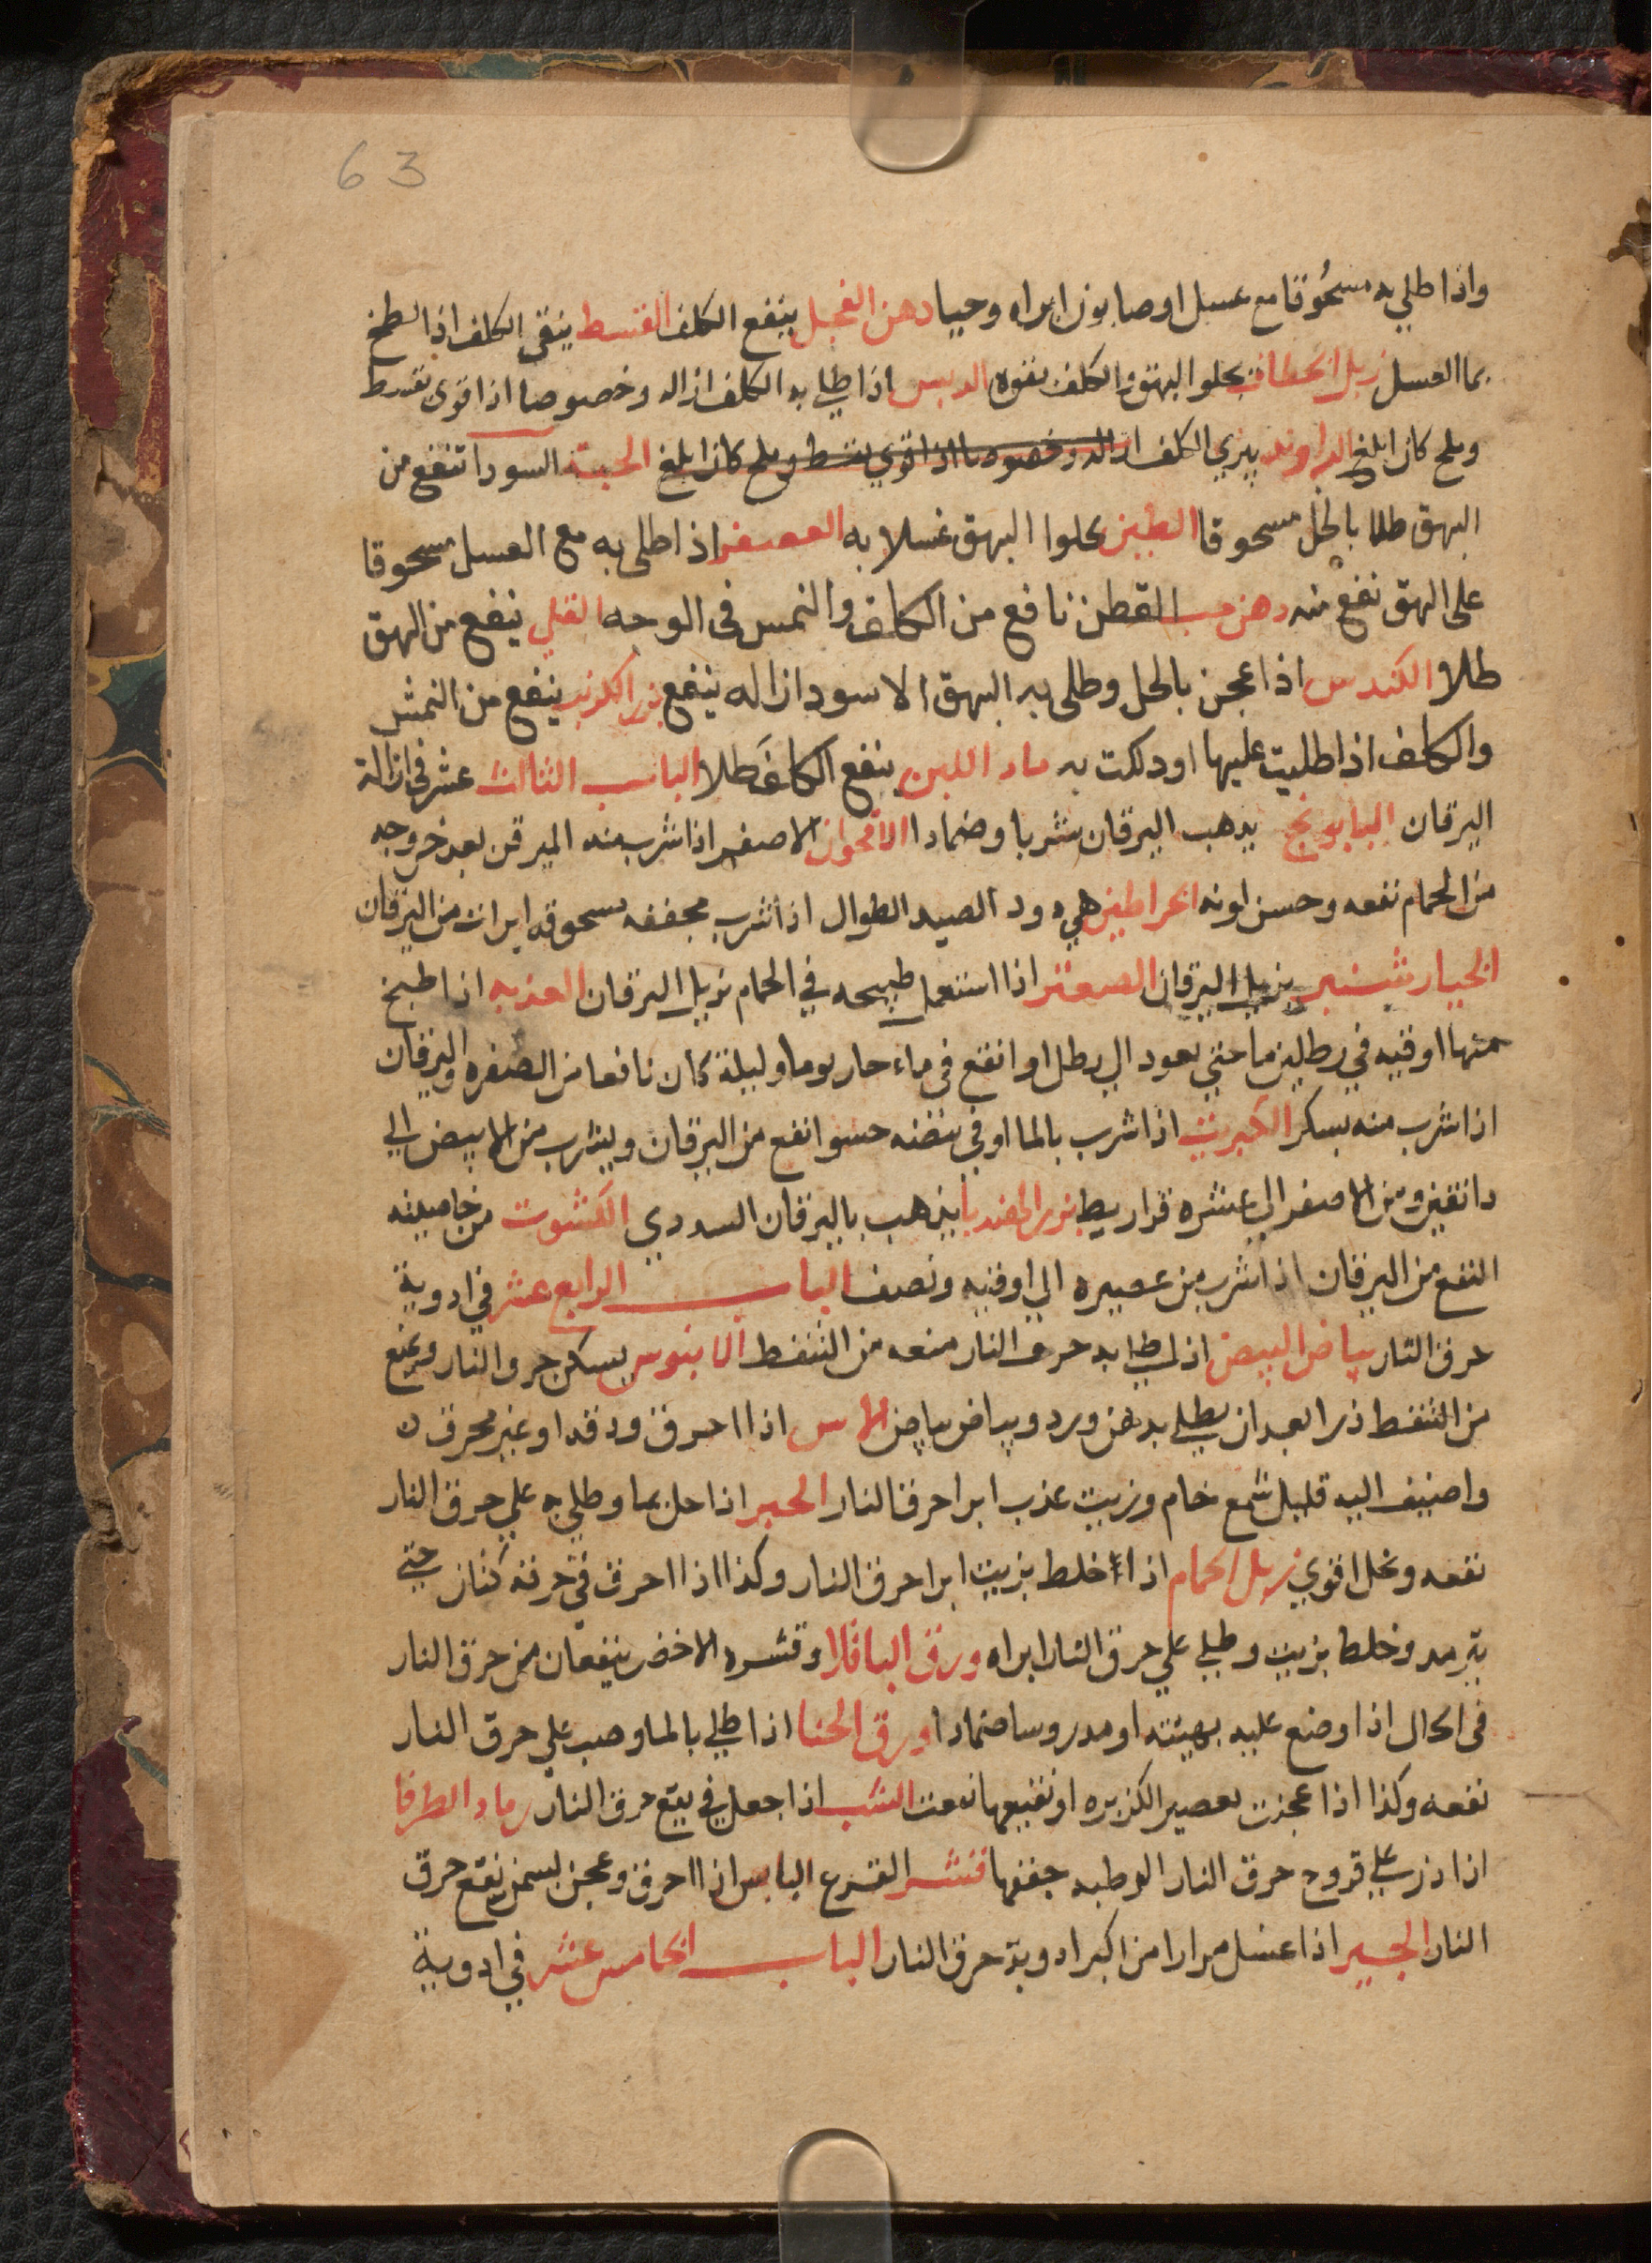 63
واذا طلي به مسحُوقا مع عسل او صابون ابراه وحيا دهن الفجل ينفع الكلف القسط ينقى الكلف اذا لطخ
بما العسل زبل الخطاف يجلوا البهق والكلف بقوه الدبس اذا طلي به الكلف ازاله وخصوصا اذا قوى بقسط
وملح كان ابلغ الراوند يبري الكلف ازاله وخصوصا اذا قوي بقسط وملح كان ابلغ الحبة السودا تنفع من
البهق طلا بالخل مسحوقا الطين يجلوا البهق غسلا به العصفر اذا طلى به مع العسل مسحوقا
على البهق نفع منه دهن حب القطن نافع من الكلف والنمس فى الوجه القلي ينفع من البهق
طلا الكندس اذا عجن بالخل وطلى به البهق الاسود ازاله ينفع بزر الكرنب ينفع من النمش
والكلف اذا طليت عليها او دلكت به ماء اللبن ينفع الكلف طلا الباب الثالث عشر فى ازالة
اليرقان البابونج يدهب اليرقان شربا وضمادا الاقحوان الاصفر اذا شرب منه الميرقن بعد خروجه
من الحمام نفعه وحسن لونه الخراطين هي دود الصيد الطوال اذا شرب مجففه مسحوقه ابرات من اليرقان
الخيار شنبر يزيل اليرقان الصعتر اذا استعمل طبيخه في الحمام يزيل اليرقان العذبه اذا طبخ
منها اوقيه في رطلين ما حتي يعود الي رطل او انقع فى ماء حار يوما وليلة كان نافعا من الصفره واليرقان
اذا شرب منه بسكر الكبريت اذا شرب بالما او في بيضه حسوا نفع من اليرقان ويشرب من الابيض الي
دانقين ومن الاصفر الي عشره قراريط بزر الهندبا يذهب باليرقان السددي الكشوت من خاصيته
النفع من اليرقان اذا شرب من عصيره الي اوقيه ونصف الباب الرابع عشر في ادوية
حرق النار بياض البيض اذا لطخ به حرق النار منعه من التنفط الابنوس يسكن حرق النار ويمنع
من التنفط ذرا بعد ان يطلي بدهن ورد وبياض بيض الاس اذا احرق ودقه او غير محرق ن
واضيف اليه قليل شمع خام وزيت عذب ابرا حرق النار الحبر اذا حل بما وطلي به علي حرق النار
نفعه وبخل اقوي زبل الحمام اذا خلط بزيت ابرا حرق النار وكذا اذا احرق في خرقه كتان حتي
يترمد وخلط بزيت وطلي علي حرق النار ابراه ورق الباقلا وقشره الاخضر ينفعان من حرق النار
فى الحال اذا وضع عليه بهيئته او مدروسا ضمادا ورق الحنا اذا طلي بالما وصب علي حرق النار
نفعه وكذا اذا عجنت بعصير الكزبره او نقيعها نفعت الشب اذا جعل في بقع حرق النار رماد الطرفا
اذا ذر علي قروح حرق النار الرطبه جففها قشر القرع اليابس اذا احرق وعجن بسمن نفع حرق
النار الجير اذا غسل مرارا من اكبر ادوية حرق النار الباب الخامس عشر في ادوية